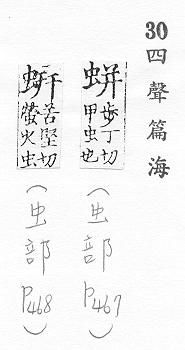 30 四聲篇海
蛢 步丁切
甲虫也
(虫部 P467)
蚈 苦堅切
螢火虫
(虫部 P468)